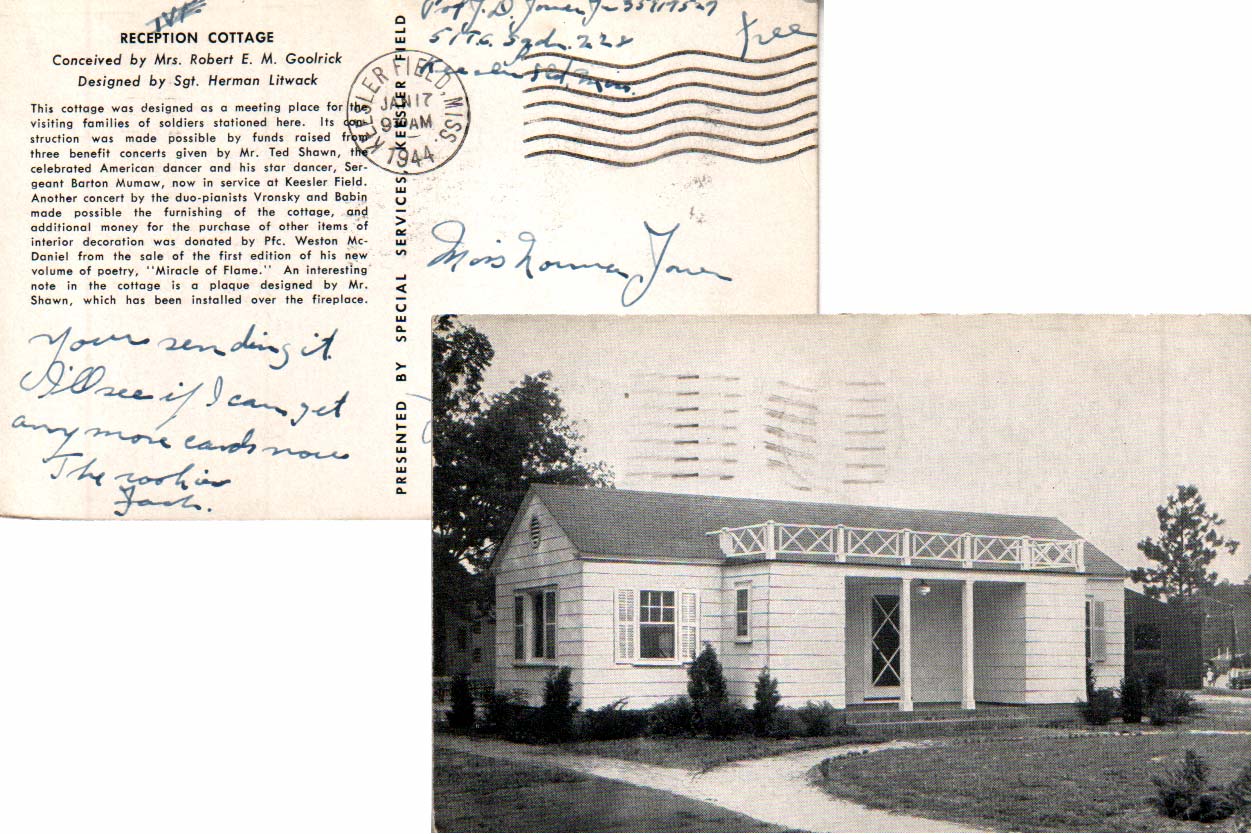 RECEPTION COTTAGE
Conceived by Mrs. Robert E. M. Goolrick
Designed by Sgt. Herman Litwack
This cottage was designed as a meeting place for the
visiting families of soldiers stationed here. Its con-
struction was made possible by funds raised from
three benefit concerts given by Mr. Ted Shawn, the
celebrated American dancer and his star dancer, Ser-
geant Barton Mumaw, now in service at Keesler Field.
Another concert by the duo-pianists Vronsky and Babin
made possible the furnishing of the cottage, and
additional money for the purchase of other items of
interior decoration was donated by Pfc. Weston Mc-
Daniel from the sale of the first edition of his new
volume of poetry, "Miracle of Flame." An interesting
note in the cottage is a plaque designed by Mr.
Shawn, which has been installed over the fireplace.
yours sending it.
I'll see if I can get
any more cards now
The rookie
Jack.
PRESENTED BY SPECIAL SERVICES, KEESLER FIELD
J. D. Jr
Sqdn.
Keesler Fld, Miss.
free
KEESLER FIELD, MISS.
JAN 17
9 AM
1944
Miss Norma